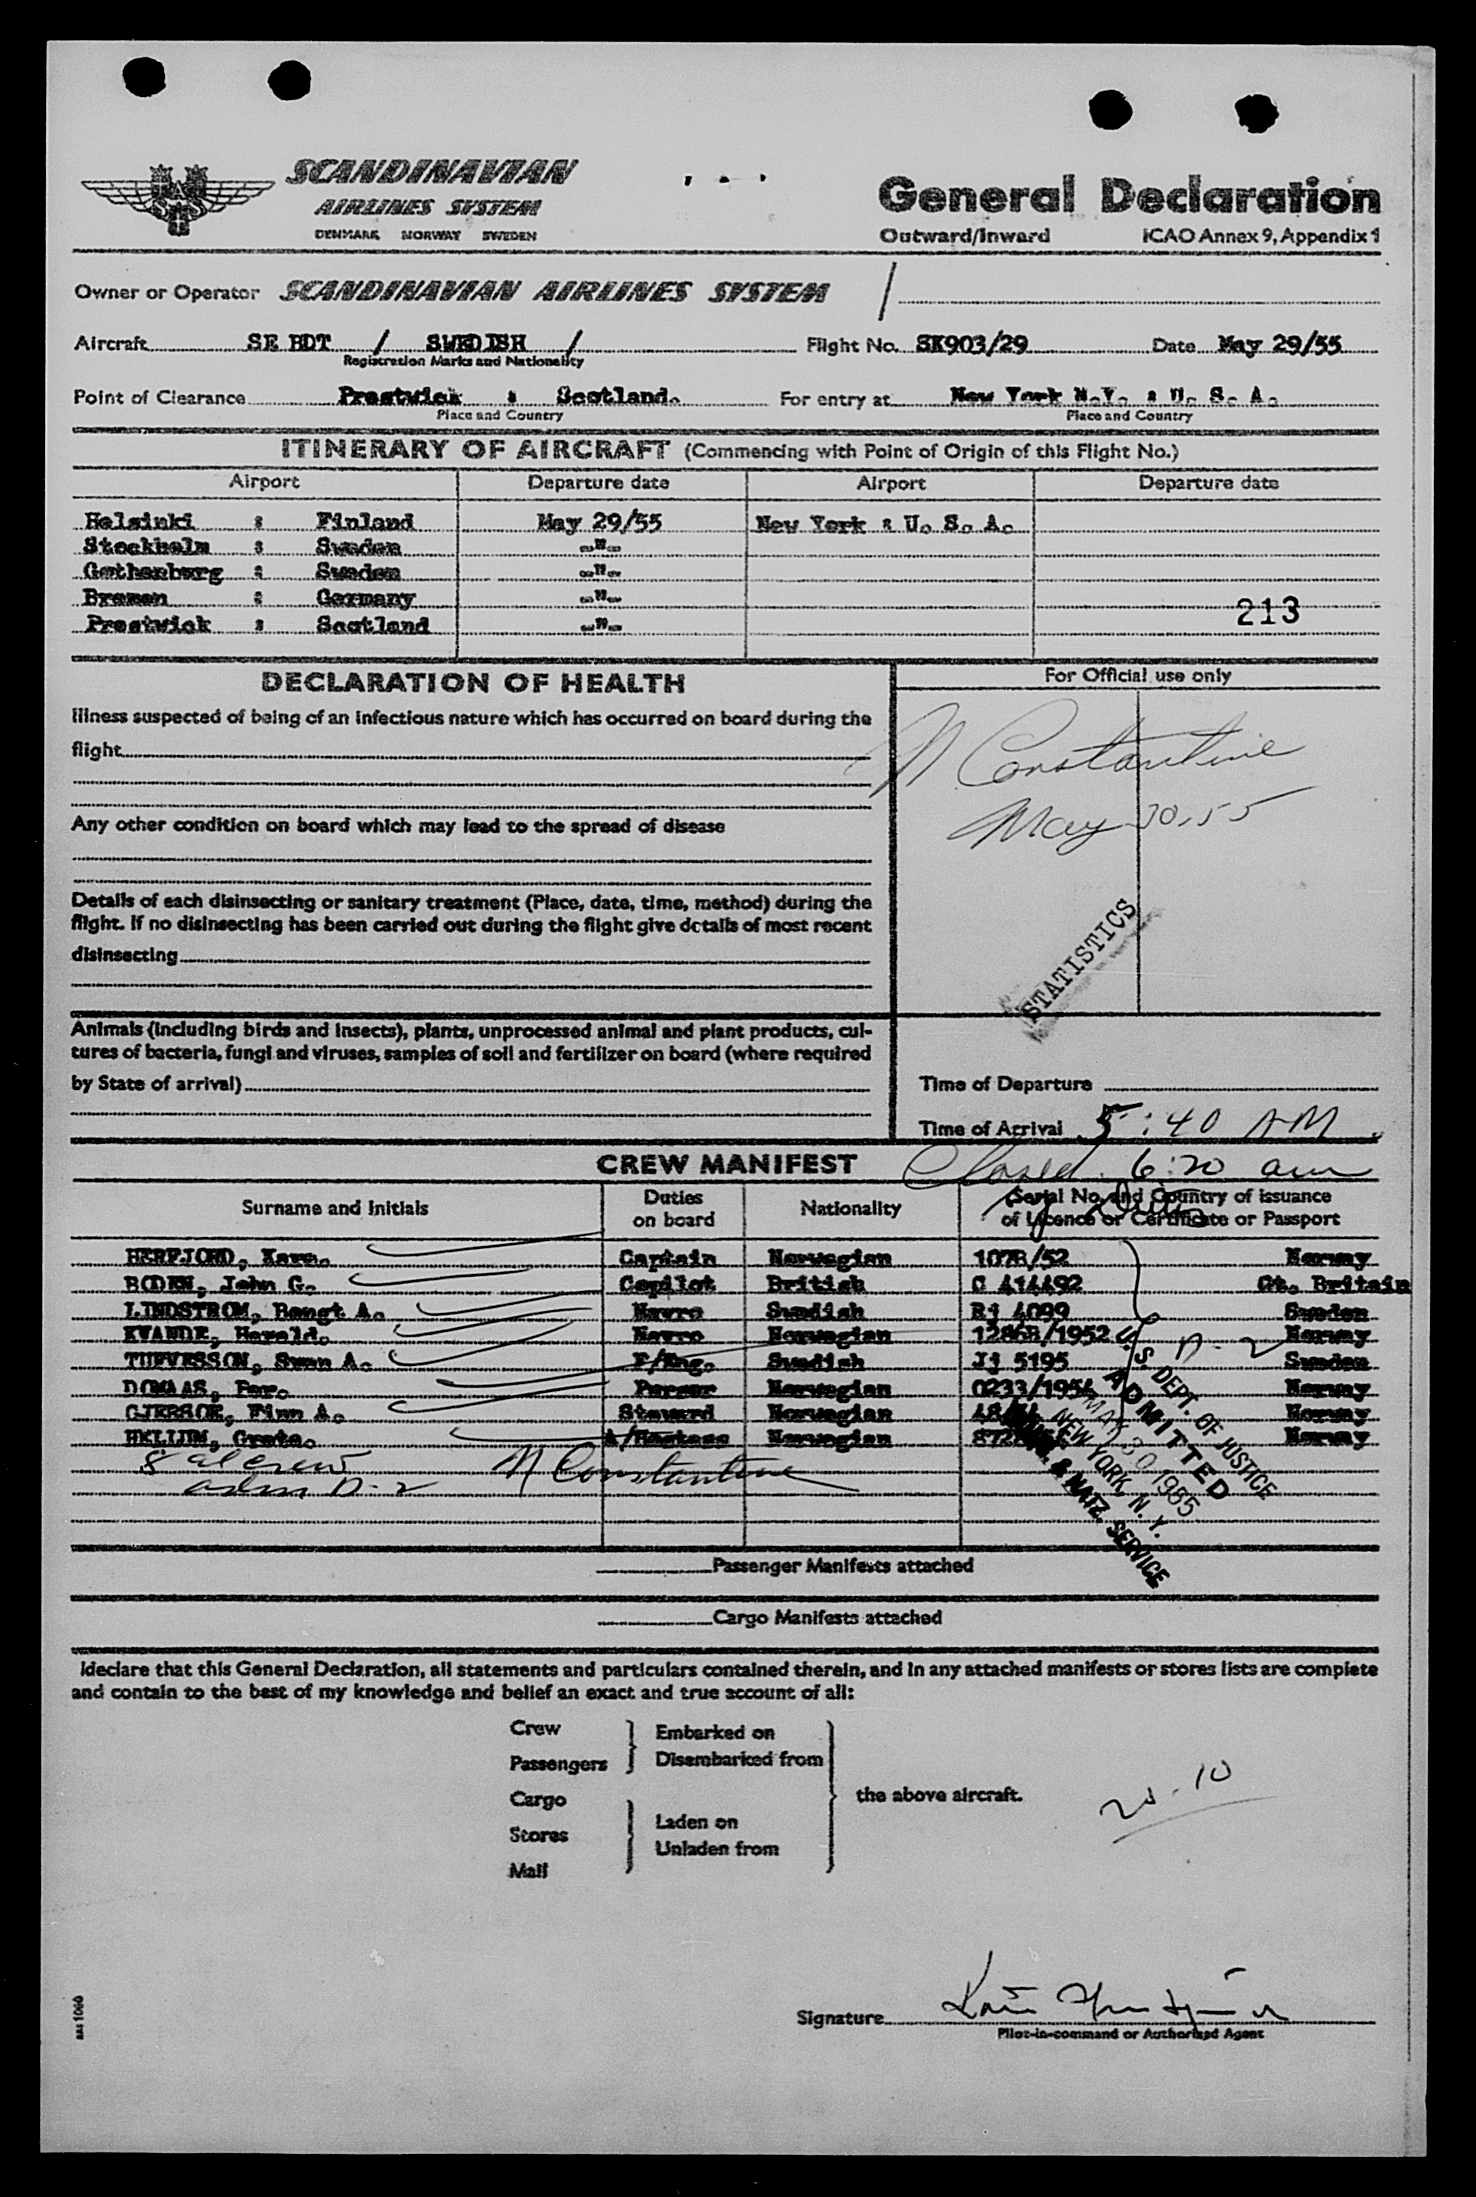 SCANDINAVIAN
AIRLINES SYSTEM
DENMARK NORWAY SWEDEN
General Declaration
Outward/Inward ICAO Annex 9, Appendix 1
Owner or Operator SCANDINAVIAN AIRLINES SYSTEM /
Aircraft SE BDT / SWEDISH / Flight No. SK903/29 Date May 29/55
Registration Marks and Nationality
Point of Clearance Prestwick : Scotland. For entry at New York N.Y. : U. S. A.
Place and Country Place and Country
ITINERARY OF AIRCRAFT (Commencing with Point of Origin of this Flight No.)
Airport Departure date Airport Departure date
Helsinki : Finland May 29/55 New York : U. S. A.
Stockholm : Sweden -"-
Gothenburg : Sweden -"-
Bremen : Germany -"-
Prestwick : Scotland -"-
213
DECLARATION OF HEALTH
Illness suspected of being of an infectious nature which has occurred on board during the
flight
Any other condition on board which may lead to the spread of disease
Details of each disinsecting or sanitary treatment (Place, date, time, method) during the
flight. If no disinsecting has been carried out during the flight give details of most recent
disinsecting
Animals (including birds and insects), plants, unprocessed animal and plant products, cul-
tures of bacteria, fungi and viruses, samples of soil and fertilizer on board (where required
by State of arrival)
For Official use only
N Constantine
May 30, 55
STATISTICS
Time of Departure
Time of Arrival 5:40 AM
Closed 6:20 am
CREW MANIFEST
Surname and Initials Duties on board Nationality Serial No. and Country of issuance of Licence or Certificate or Passport
HERFJORD, Kare. Captain Norwegian 107B/52 Norway
BODEN, John G. Copilot British C 414492 Gt. Britain
LINDSTROM, Bengt A. Navro Swedish Rj 4099 Sweden
KVANDE, Harald. Navro Norwegian 1286B/1952 Norway
TUFVESSON, Sven A. F/Eng. Swedish Jj 5195 Sweden
DOMAAS, Per. Purser Norwegian 0233/1954 Norway
GJERSOE, Finn A. Steward Norwegian Norway
HELLUM, Grete. A/Hostess Norwegian Norway
D-2
8 al crew
adm D-2
N Constantine
U. S. DEPT. OF JUSTICE
ADMITTED
MAY 30 1955
NEW YORK, N. Y.
& NATZ. SERVICE
Passenger Manifests attached
Cargo Manifests attached
I declare that this General Declaration, all statements and particulars contained therein, and in any attached manifests or stores lists are complete
and contain to the best of my knowledge and belief an exact and true account of all:
Crew
Passengers
Embarked on
Disembarked from
Cargo
Stores
Mail
Laden on
Unladen from
the above aircraft.
20-10
Signature
Pilot-in-command or Authorized Agent